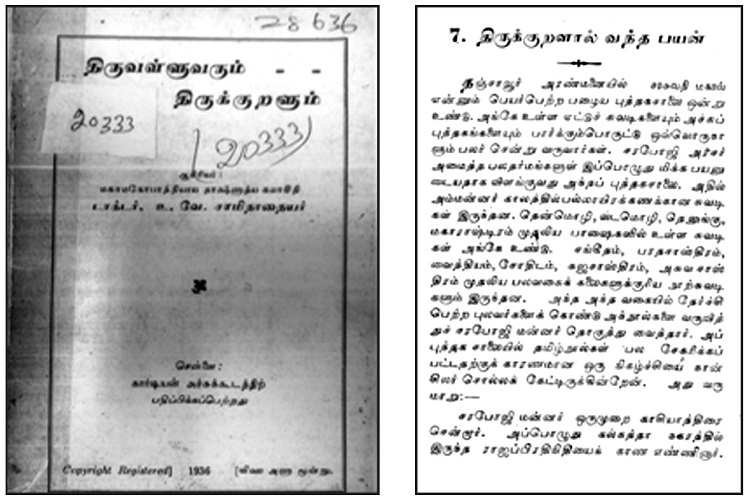 28636
திருவள்ளுவரும் - -
திருக்குறளும்
20333
20333
ஆசிரியர்:
மகாமகோபாத்தியாய தாக்ஷிணாத்ய கலாநிதி
டாக்டர். உ. வே. சாமிநாதையர்
சென்னை:
கார்டியன் அச்சுக்கூடத்திற்
பதிப்பிக்கப்பெற்றது
Copyright Registered] 1936 [விலை அணா மூன்று.
7. திருக்குறளால் வந்த பயன்
தஞ்சாவூர் அரண்மனையில் சரசுவதி மகால்
என்னும் பெயர்பெற்ற பழைய புத்தகசாலை ஒன்று
உண்டு. அங்கே உள்ள ஏட்டுச் சுவடிகளையும் அச்சுப்
புத்தகங்களையும் பார்க்கும்பொருட்டு ஒவ்வொருநா
ளும் பலர் சென்று வருவார்கள். சரபோஜி அரசர்
அமைத்த பலதர்மங்களுள் இப்பொழுது மிக்க பயனு
டையதாக விளங்குவது அந்தப் புத்தகசாலை. அதில்
அம்மன்னர் காலத்தில்பல்லாயிரக்கணக்கான சுவடி
கள் இருந்தன. தென்மொழி, வடமொழி, தெலுங்கு,
மகாராஷ்டிரம் முதலிய பாஷைகளில் உள்ள சுவடி
கள் அங்கே உண்டு. சங்கீதம், பரதசாஸ்திரம்,
வைத்தியம், சோதிடம், கஜசாஸ்திரம், அசுவ சாஸ்
திரம் முதலிய பலவகைக் கலைகளுக்குரிய நூற்சுவடி
களும் இருந்தன. அந்த அந்த வகையில் தேர்ச்சி
பெற்ற புலவர்களைக் கொண்டு அந்நூல்களை வருவித்
துச் சரபோஜி மன்னர் தொகுத்து வைத்தார். அப்
புத்தக சாலையில் தமிழ்நூல்கள் பல சேகரிக்கப்
பட்டதற்குக் காரணமான ஒரு நிகழ்ச்சியை நான்
சிலர் சொல்லக் கேட்டிருக்கின்றேன். அது வரு
மாறு:—
சரபோஜி மன்னர் ஒருமுறை காசியாத்திரை
சென்றார். அப்பொழுது கல்கத்தா நகரத்தில்
இருந்த ராஜப்பிரதிநிதியைக் காண எண்ணினார்.